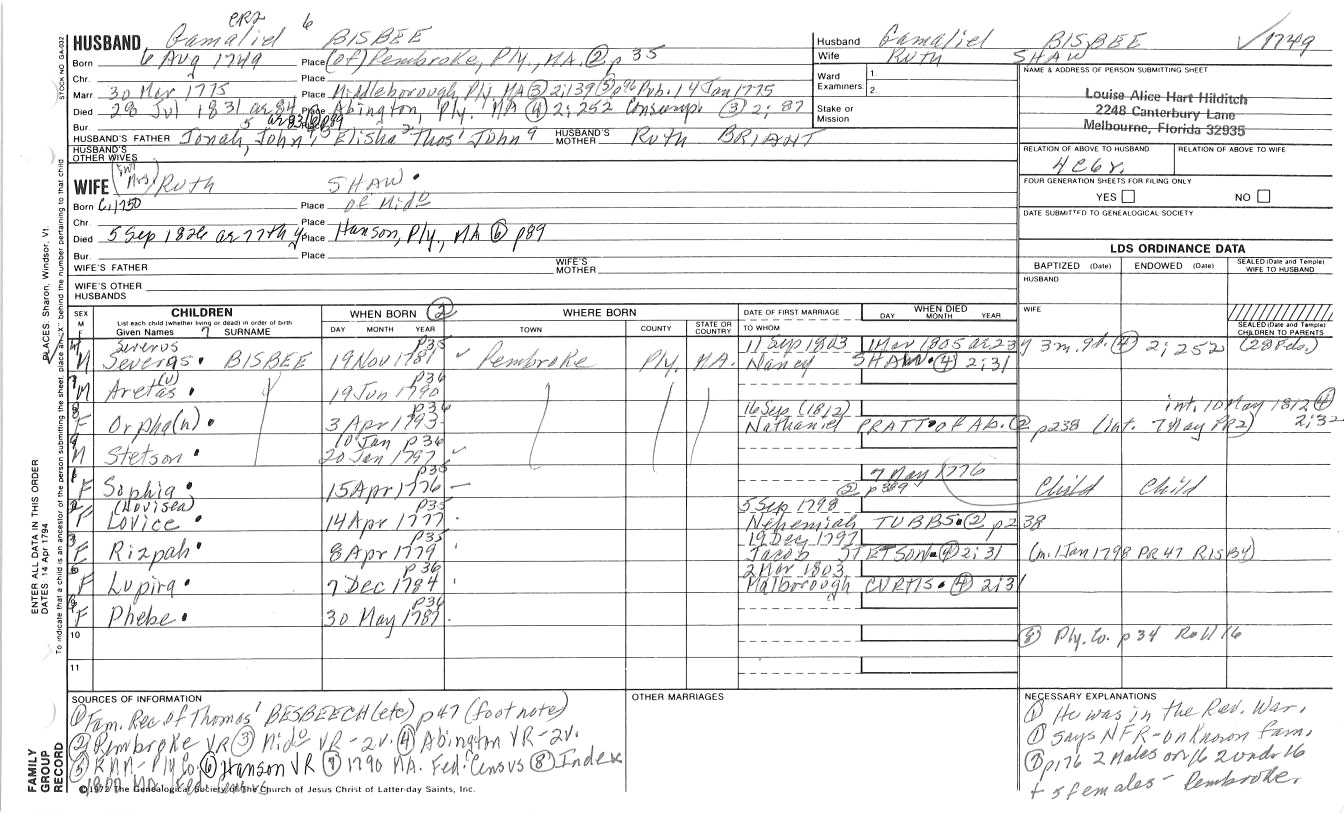 CR2 6
HUSBAND Gamaliel BISBEE
Born 6 Aug 1749 Place (of) Pembroke, Ply., MA. ② p 35
Chr. Place
Marr 30 Mar 1775 Place Middleborough Ply MA ③ 2;139 ⑤ p96 Pub. 14 Jan 1775
Died 28 Jul 1831 ae 84 Place Abington, Ply. MA ④ 2; 252 Consump. ③ 2; 87
Bur. Place
HUSBAND'S FATHER Jonah,5 John,4 Elisha3 Thos2 John9 HUSBAND'S MOTHER Ruth BRIANT
HUSBAND'S OTHER WIVES
Husband Gamaliel BISBEE ✓1749
Wife RUTH SHAW
Ward Examiners 1. 2.
Stake or Mission
NAME & ADDRESS OF PERSON SUBMITTING SHEET
Louise Alice Hart Hilditch
2248 Canterbury Lane
Melbourne, Florida 32935
RELATION OF ABOVE TO HUSBAND RELATION OF ABOVE TO WIFE
4C6r.
FOUR GENERATION SHEETS FOR FILING ONLY
YES NO
DATE SUBMITTED TO GENEALOGICAL SOCIETY
WIFE (Mrs) RUTH SHAW
Born C.1750 Place of Mido
Chr. Place
Died 5 Sep 1826 ae 77th y Place Hanson, Ply., MA ⑥ p89
Bur. Place
WIFE'S FATHER WIFE'S MOTHER
WIFE'S OTHER HUSBANDS
LDS ORDINANCE DATA
BAPTIZED (Date) ENDOWED (Date) SEALED (Date and Temple) WIFE TO HUSBAND
HUSBAND
WIFE
SEALED (Date and Temple) CHILDREN TO PARENTS
SEX M F CHILDREN WHEN BORN ② WHERE BORN DATE OF FIRST MARRIAGE WHEN DIED
List each child (whether living or dead) in order of birth
Given Names 7 SURNAME DAY MONTH YEAR TOWN COUNTY STATE OR COUNTRY TO WHOM DAY MONTH YEAR
Severus p35 11 Sep 1803 1 Mar 1805 ae 23y 3m. 9d. ④ 2; 252 (28 Feb.)
M Severas BISBEE 19 Nov 1781 Pembroke Ply. MA. Nancy SHAW ④ 2; 31
(u) p36
M Aretas 19 Jun 1790
p36 16 Sep (1812) int. 10 May 1812 ④ 2; 32
F Orpha(n) 3 Apr 1793 Nathaniel PRATT of Ab. ② p238 (int. 7 May PR2)
10 Jan p36
M Stetson 20 Jan 1797
p35 7 May 1776
F Sophia 15 Apr 1776 ② p389 Child Child
(Novisea) p35 5 Sep 1798
F Lovice 14 Apr 1777 Nehemiah TUBBS ② p238
p35 19 Dec 1797
F Rizpah 8 Apr 1779 Jacob STETSON ④ 2; 31 (m. 1 Jan 1798 PR 47 RISBY)
p36 2 Mar 1803
F Lupira 7 Dec 1784 Malborough CURTIS ④ 2; 31
p36
F Phebe 30 May 1787
10 ⑧ Ply. Co. p 34 Roll 16
11
SOURCES OF INFORMATION
① Fam. Rec of Thomas1 BESBEECH (etc) p47 (footnote)
② Pembroke VR ③ Mido VR-2v. ④ Abington VR-2v.
⑤ RMM-Ply Co ⑥ Hanson VR ⑦ 1790 MA. Fed. Census ⑧ Index
1800 MA. Fed. Census
OTHER MARRIAGES
NECESSARY EXPLANATIONS
① He was in the Rev. War.
① Says NFR-unknown fam.
⑦ p176 2 Males ov 16 2 undr 16
+ 5 females - Pembroke.
©1972 The Genealogical Society of The Church of Jesus Christ of Latter-day Saints, Inc.
STOCK NO. GA-032
PLACES: Sharon, Windsor, Vt
ENTER ALL DATA IN THIS ORDER
DATES 14 Apr 1794
To indicate that a child is an ancestor of the person submitting the sheet, place an "X" behind the number pertaining to that child
FAMILY GROUP RECORD